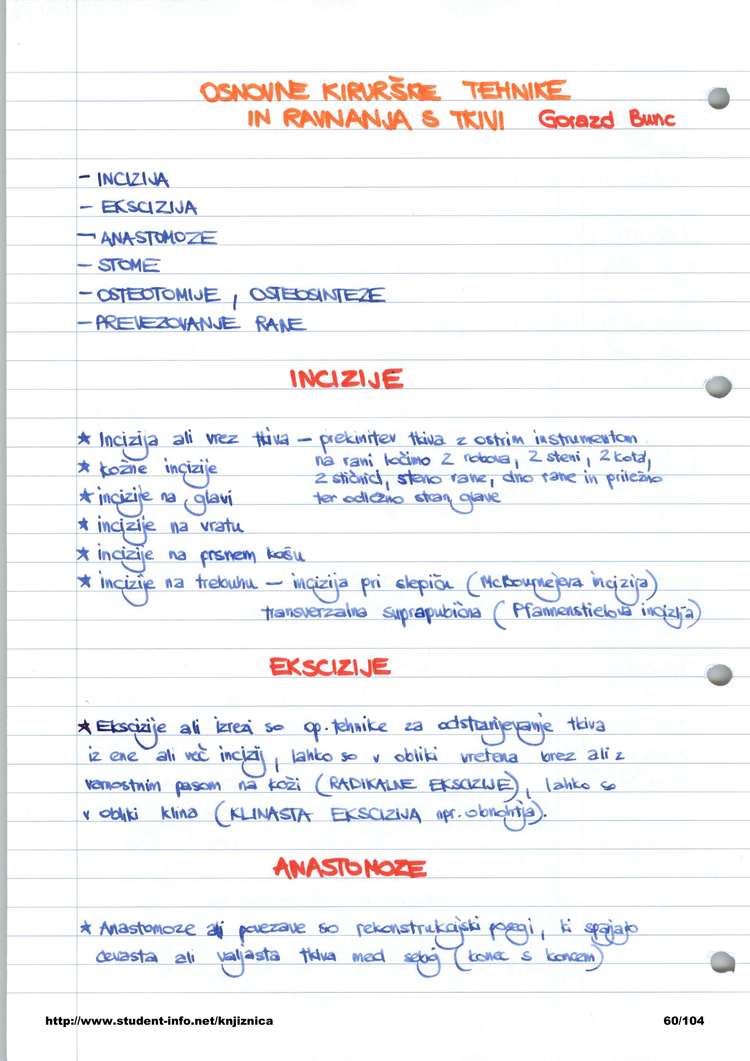 OSNOVNE KIRURŠKE TEHNIKE
IN RAVNANJA S TKIVI Gorazd Bunc
- INCIZIJA
- EKSCIZIJA
- ANASTOMOZE
- STOME
- OSTEOTOMIJE, OSTEOSINTEZE
- PREVEZOVANJE RANE
INCIZIJE
★ Incizija ali vrez tkiva - prekinitev tkiva z ostrim instrumentom
na rani ločimo 2 robova, 2 steni, 2 kota,
★ kožne incizije
2 stičnici, steno rane, dno rane in priležno
★ incizije na glavi
ter odležno stran glave
★ incizije na vratu
★ incizije na prsnem košu
★ incizije na trebuhu - incizija pri slepiču (McBournejeva incizija)
transverzalna suprapubična (Pfannenstielova incizija)
EKSCIZIJE
★ Ekscizije ali izrezi so op. tehnike za odstranjevanje tkiva
iz ene ali več incizij, lahko so v obliki vretena brez ali z
varnostnim pasom na koži (RADIKALNE EKSCIZIJE), lahko so
v obliki klina (KLINASTA EKSCIZIJA npr. obnohtja).
ANASTOMOZE
★ Anastomoze ali povezave so rekonstrukcijski posegi, ki spajajo
cevasta ali valjasta tkiva med seboj (konec s koncem)
http://www.student-info.net/knjiznica
60/104